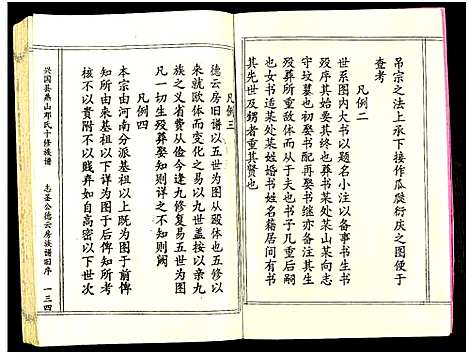 吊宗之法上承下接作瓜瓞衍庆之图便于
查考
凡例二
世系图内大书以题名小注以备事书生书
殁序其始要其终也葬书某处某山某向志
守坟墓也娶初书配再娶书继亦备考注
殁葬所从而异于夫也书子几重后嗣
也女书适某处某姓婚书姓名藉居间有书
其先世及甥者重其贤也
凡例三
德云房旧谱以五世为图从殴式五修以
来就欧体而变化之易以九世盖按以亲九
族之义省费从俭今逢九修复易五世为图
凡一切生殁葬娶知则详之不知则阙
凡例四
本宗由河南分派基祖以上既为图于前俾
知所由来基祖以下复为图于后俾知所考
核不以贵附不以贱弃如自高密以下世次
兴国县燕山邓氏十修族谱
志荃公德云房族谱旧序
一三四